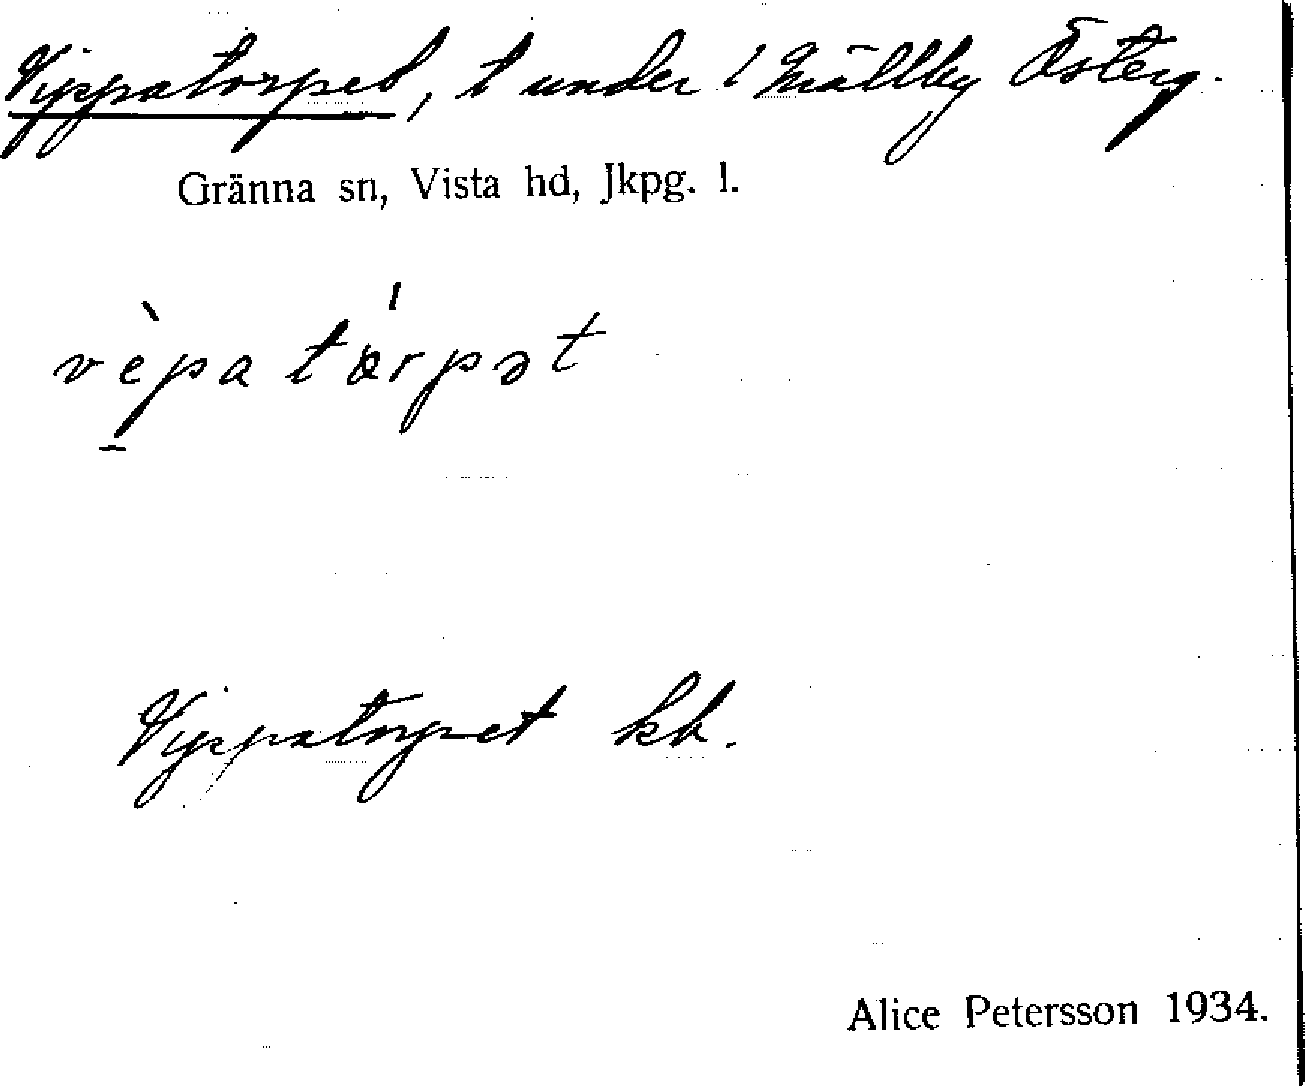 Vippatorpet, t under 1 Mällby Österg.
Gränna sn, Vista hd, Jkpg. l.
vèpa tǿrpət
Vippatorpet kb.
Alice Petersson 1934.